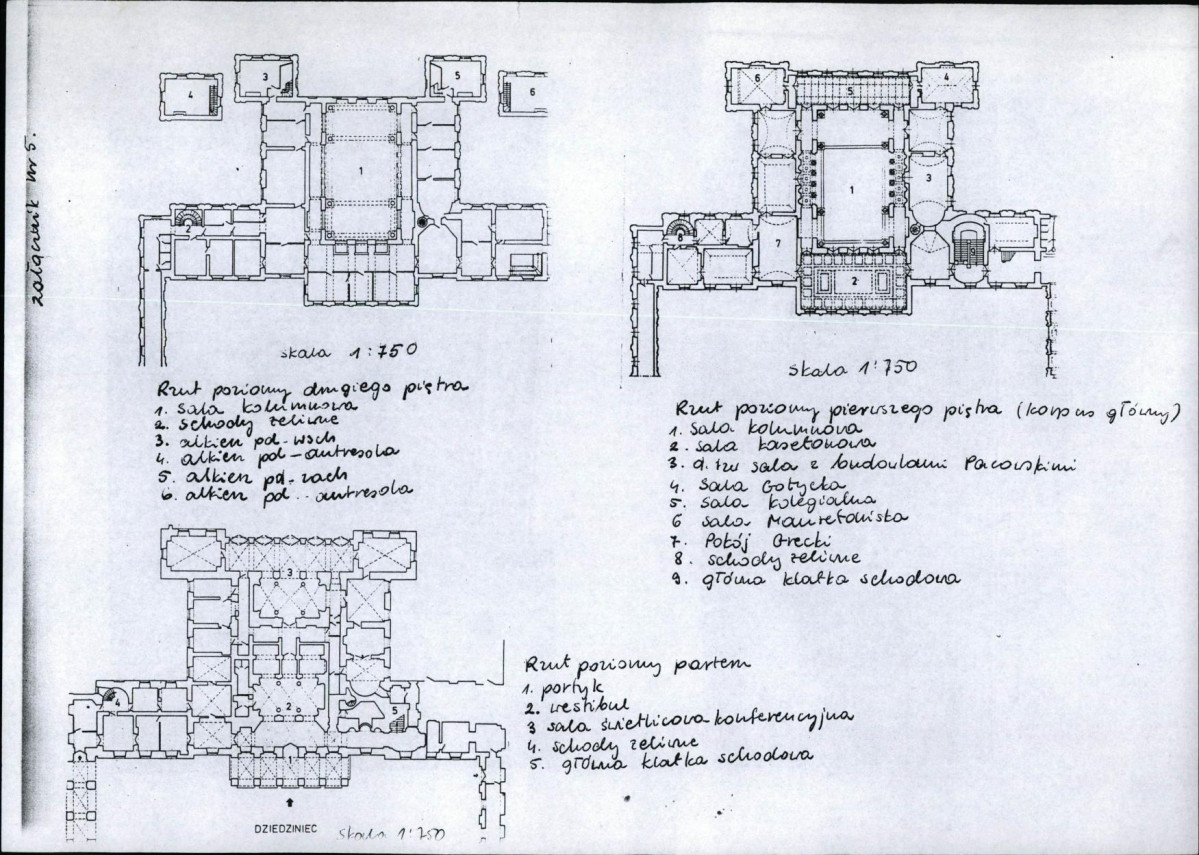 załącznik nr 5.
4
3
5
6
1
2
skala 1:750
Rzut poziomy drugiego piętra
1. sala kolumnowa
2. schody żeliwne
3. alkierz pd-wsch
4. alkierz pd-antresola
5. alkierz pd-zach
6. alkierz pd.. antresola
6
5
4
1
3
8
7
2
skala 1:750
Rzut poziomy pierwszego piętra (korpus główny)
1. Sala kolumnowa
2. sala kasetonowa
3. d. tzw sala z budowlami Pacowskimi
4. Sala Gotycka
5. Sala kolegialna
6 sala Mauretańska
7. Pokój Grecki
8. schody żeliwne
9. główna klatka schodowa
3
4
2
5
1
DZIEDZINIEC
Skala 1:750
Rzut poziomy parteru
1. portyk
2. westibul
3 sala świetlicowa konferencyjna
4. schody żeliwne
5. główna klatka schodowa